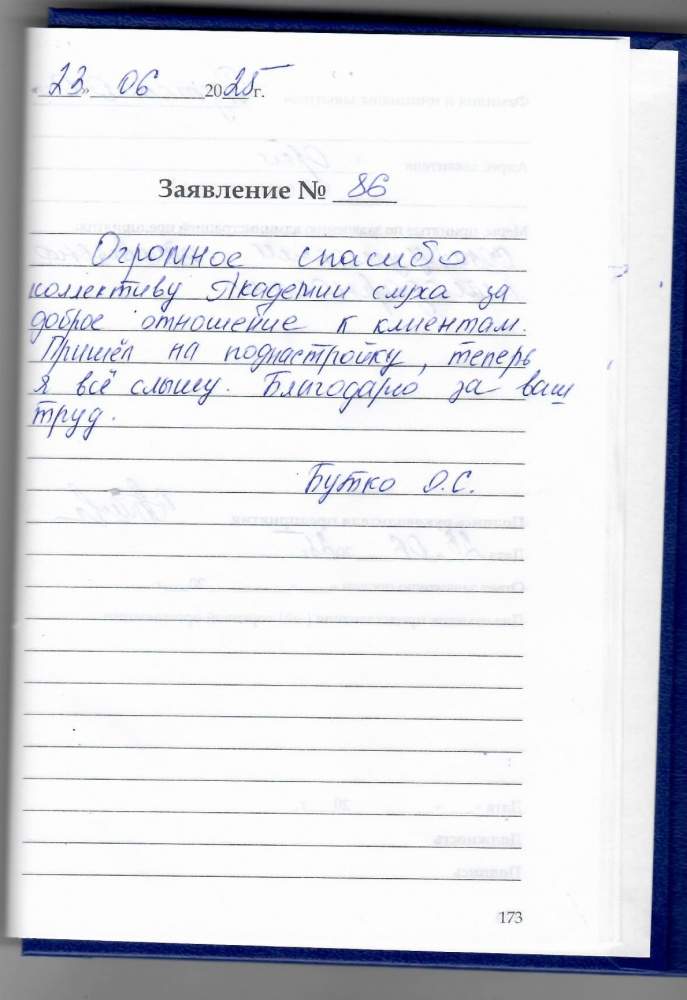 23 » 06 2025 г.
Заявление № 86
Огромное спасибо
коллективу Академии слуха за
доброе отношение к клиентам.
Пришёл на поднастройку, теперь
я всё слышу. Благодарю за ваш
труд.
Бутко О.С.
173